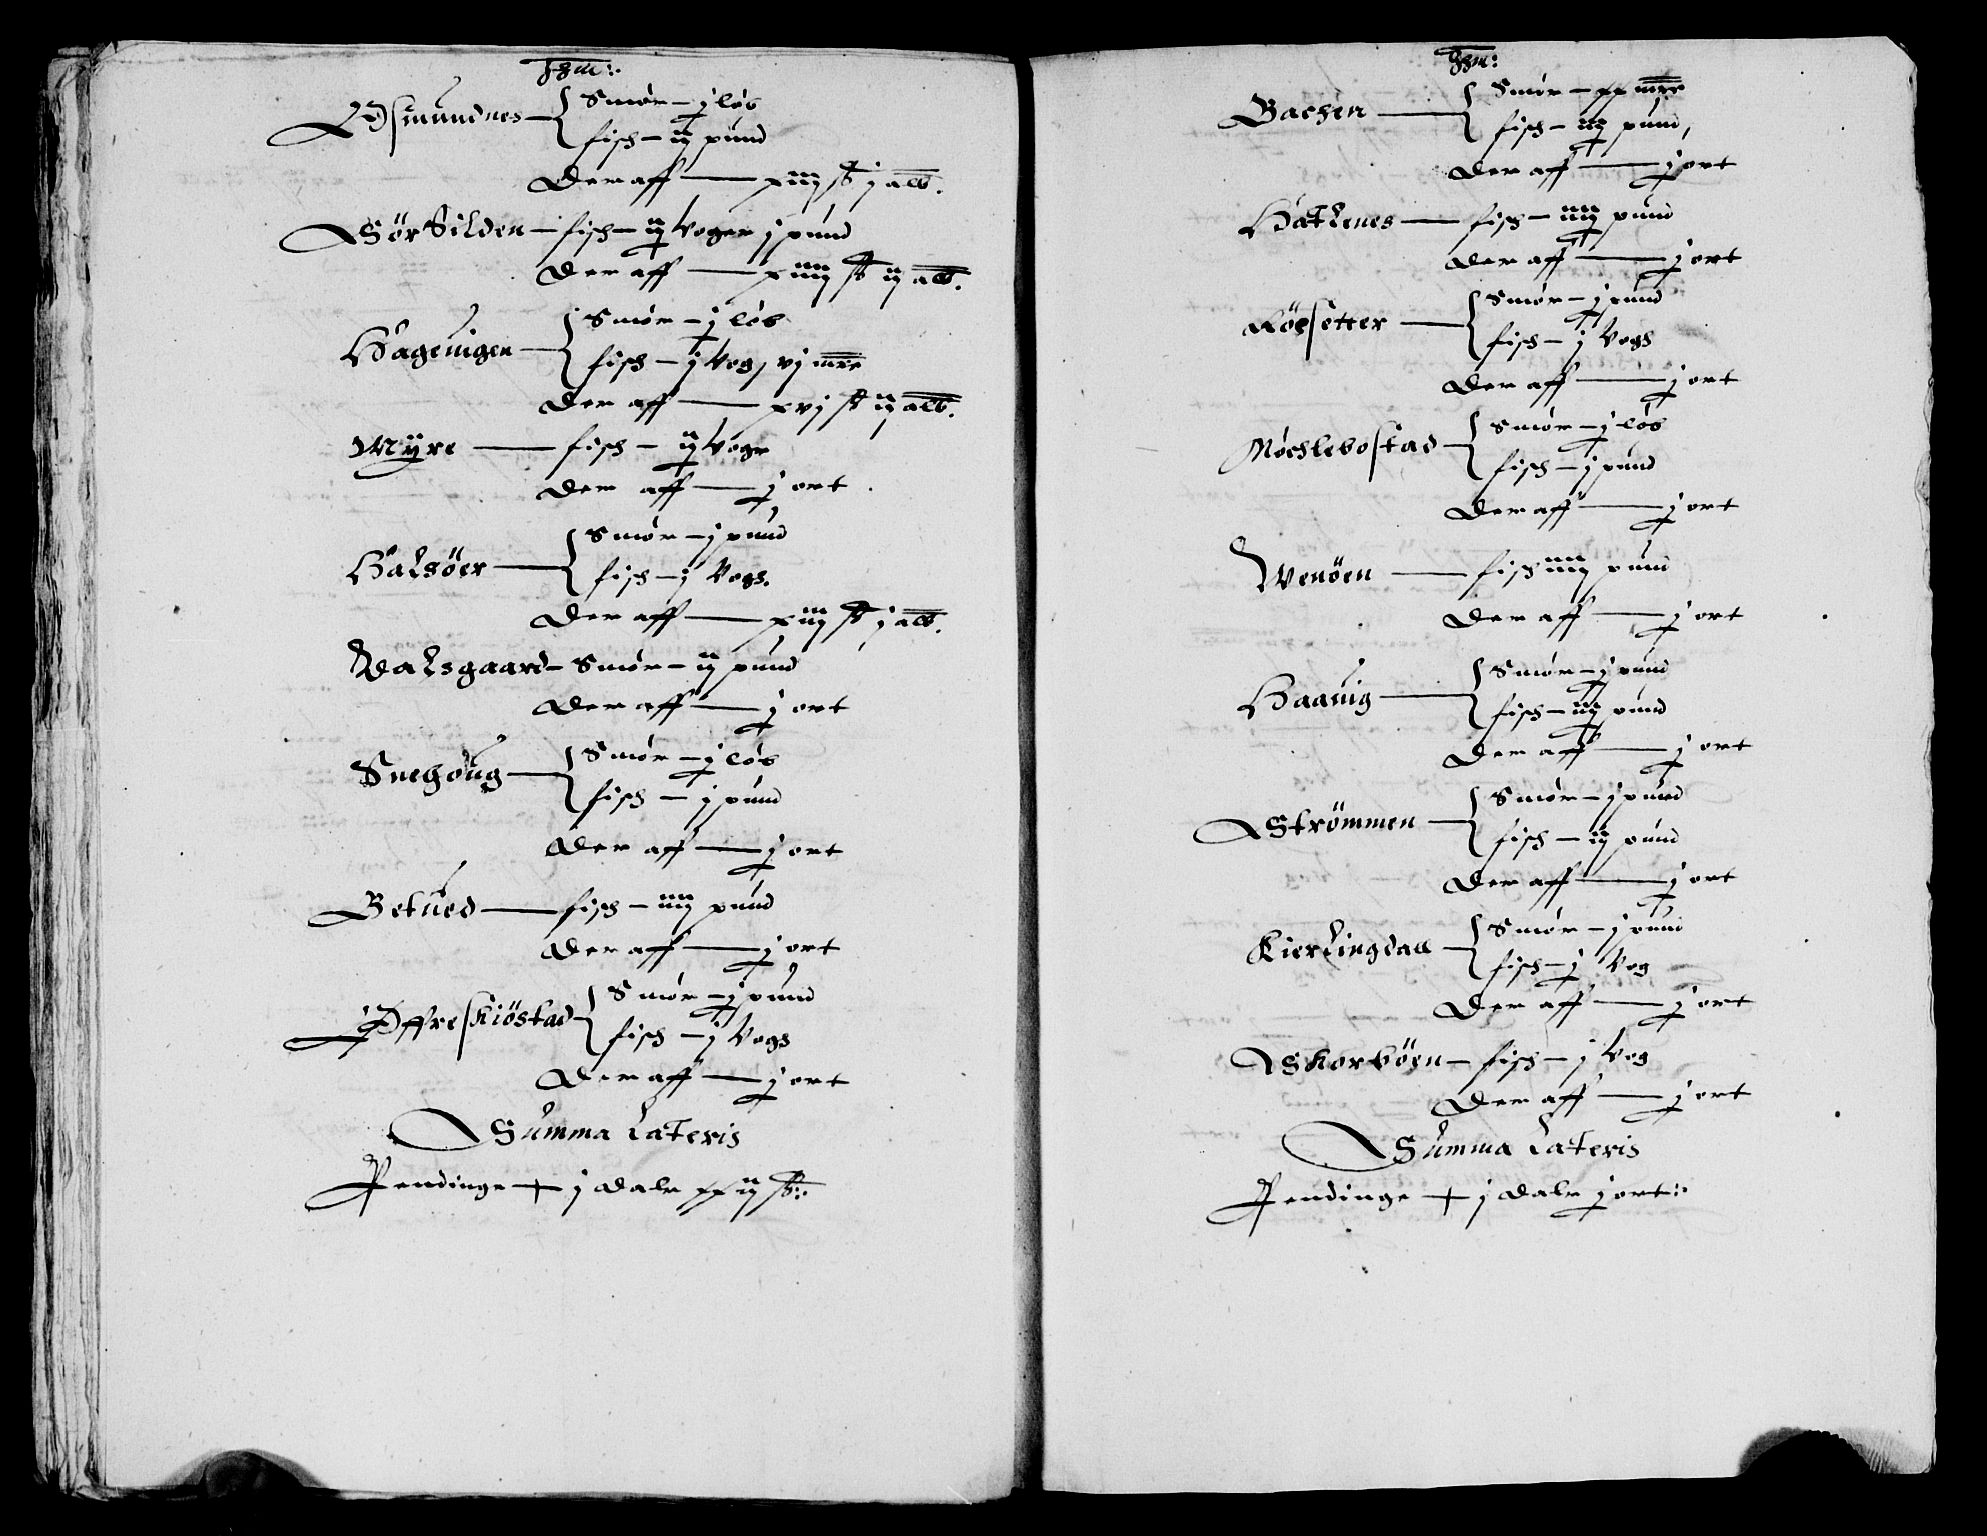 Osmundnes { Smör – j löb
fisch – ij pund
Der aff — xiij ß j alb.
Sör Silden – fisch – ij Voger j pund
Der aff — xiiij ß ij alb.
Hageuigen { Smör – j löb
fisch – j Vog, vj mrr
Der aff — xvj ß ij alb.
Myre — fisch – ij Voge
Der aff — j ort
Halsöer { Smör – j pund
fisch – j Vogh.
Der aff — xiij ß j alb.
Dalsgaard – Smör – ij pund
Der aff — j ort
Snehoug { Smör – j löb
fisch – j pund
Der aff — j ort
Betued — fisch – iiij pund
Der aff — j ort
Offreskiöstad { Smör – j pund
fisch – j Vogh
Der aff — j ort
Summa Lateris
Pendinge + j Dalr xxij ß:
Bachen { Smör – xx mrr
fisch – iij pund,
Der aff — j ort
Hatlenes — fisch – iiij pund
Der aff — j ort
Röesetter { Smör – j pund
fisch – j Vogh
Der aff — j ort
Möchlebostad { Smör – j löb
fisch – j pund
Der aff — j ort
Wenöen — fisch iiij pund
Der aff — j ort
Haauig { Smör – j pund
fisch – iij pund
Der aff — j ort
Strömmen { Smör – j pund
fisch – ij pund
Der aff — j ort
Kierlingdall { Smör – j pund
fisch – j Vog
Der aff — j ort
Skorböen – fisch – j Vog
Der aff — j ort
Summa Lateris
Pendinge + j Dalr j ort: